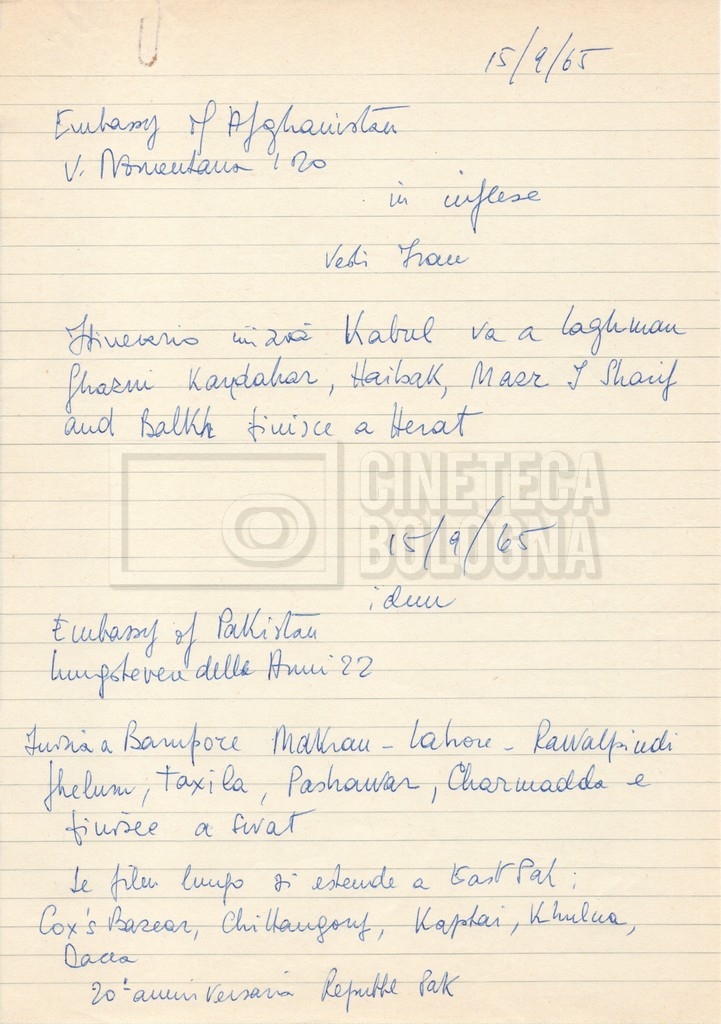 15/9/65
Embassy of Afghanistan
V. Nomentana 120
in inglese
Vedi Iran
Itinerario inizia Kabul va a Laghman
Ghazni Kandahar, Haibak, Mazr I Sharif
and Balkh finisce a Herat
CINETECA
BOLOGNA
15/9/65
idem
Embassy of Pakistan
Lungotevere delle Armi 22
Inizia a Bampore Makran - Lahore - Rawalpindi
Jhelum, Taxila, Pashawar, Charmadda e
finisce a Swat
Se film lungo si estende a East Pak:
Cox's Bazear, Chittangong, Kaptai, Khulna,
Dacca
20° anniversario Repubbl Pak